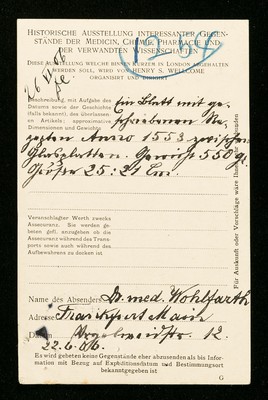 HISTORISCHE AUSSTELLUNG INTERESSANTER GEGEN-
STÄNDE DER MEDICIN, CHEMIE, PHARMACIE UND
DER VERWANDTEN WISSENSCHAFTEN
DIESE AUSSTELLUNG WELCHE BINNEN KURZER IN LONDON ABGEHALTEN
WERDEN SOLL, WIRD VON HENRY S. WELLCOME
ORGANISIRT UND DIRIGIRT
Beschreibung, mit Aufgabe des
Datums sowie der Geschichte
(falls bekannt), des überlassen-
en Artikels; approximative
Dimensionen und Gewicht.
Ein Blatt mit ge-
schriebenen Re-
zepten Anno 1553 zwischen
Glasplatten. Gewicht 550 gr.
Größe 25:21 cm.
Veranschlagter Werth zwecks
Assecuranz. Sie werden ge-
beten gefl. anzugeben ob die
Assecuranz während des Trans-
ports sowie auch während des
Aufbewahrens zu decken ist
Für Auskunft oder Vorschläge wäre Ihnen
Name des Absenders Dr. med. Wohlfarth
Adresse Frankfurt Main
Datum 12.
22.6.06.
Es wird gebeten keine Gegenstände eher abzusenden als bis Infor-
mation mit Bezug auf Expeditionsdatum und Bestimmungsort
bekanntgegeben ist
G